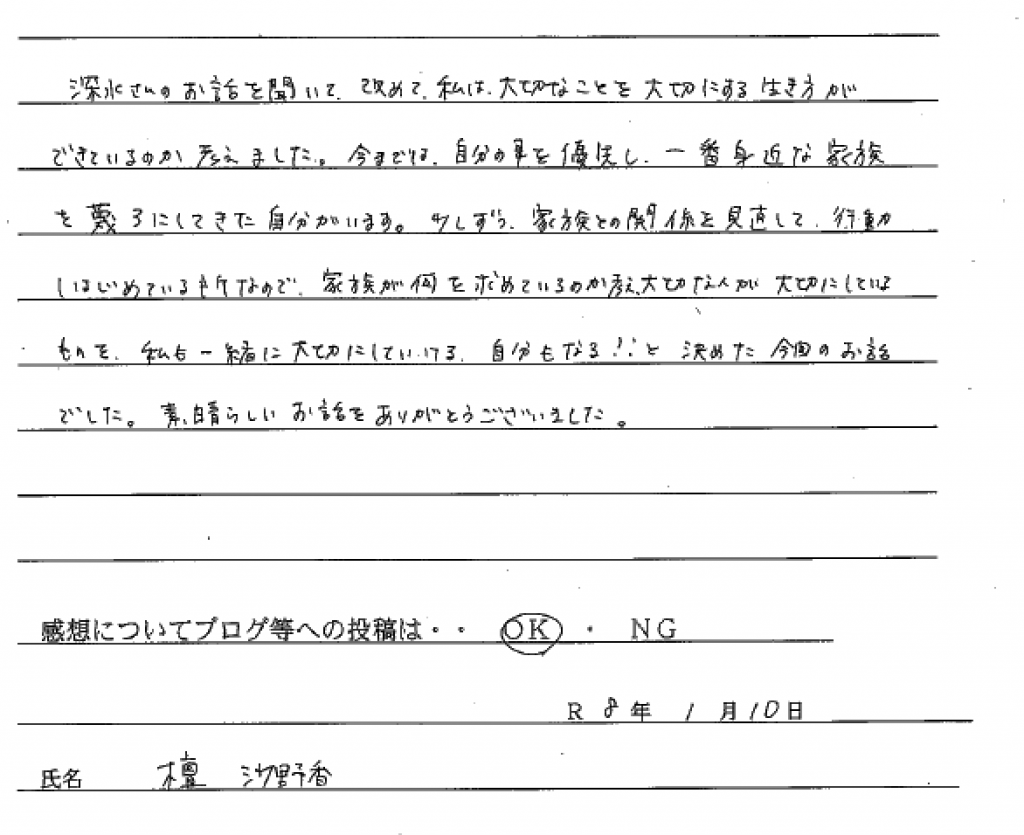 深水さんのお話を聞いて、改めて、私は、大切なことを大切にする生き方が
できているのか考えました。今までは、自分の事を優先し、一番身近な家族
を蔑ろにしてきた自分がいます。少しずつ、家族との関係を見直して、行動
しはじめている所なので、家族が何を求めているのか考え、大切な人が大切にしている
ものを、私も一緒に大切にしていける、自分もなる!!と決めた今回のお話
でした。素晴らしいお話をありがとうございました。
感想についてブログ等への投稿は・・ OK ・ NG
R 8 年 1 月 10 日
氏名 檀 沙野香